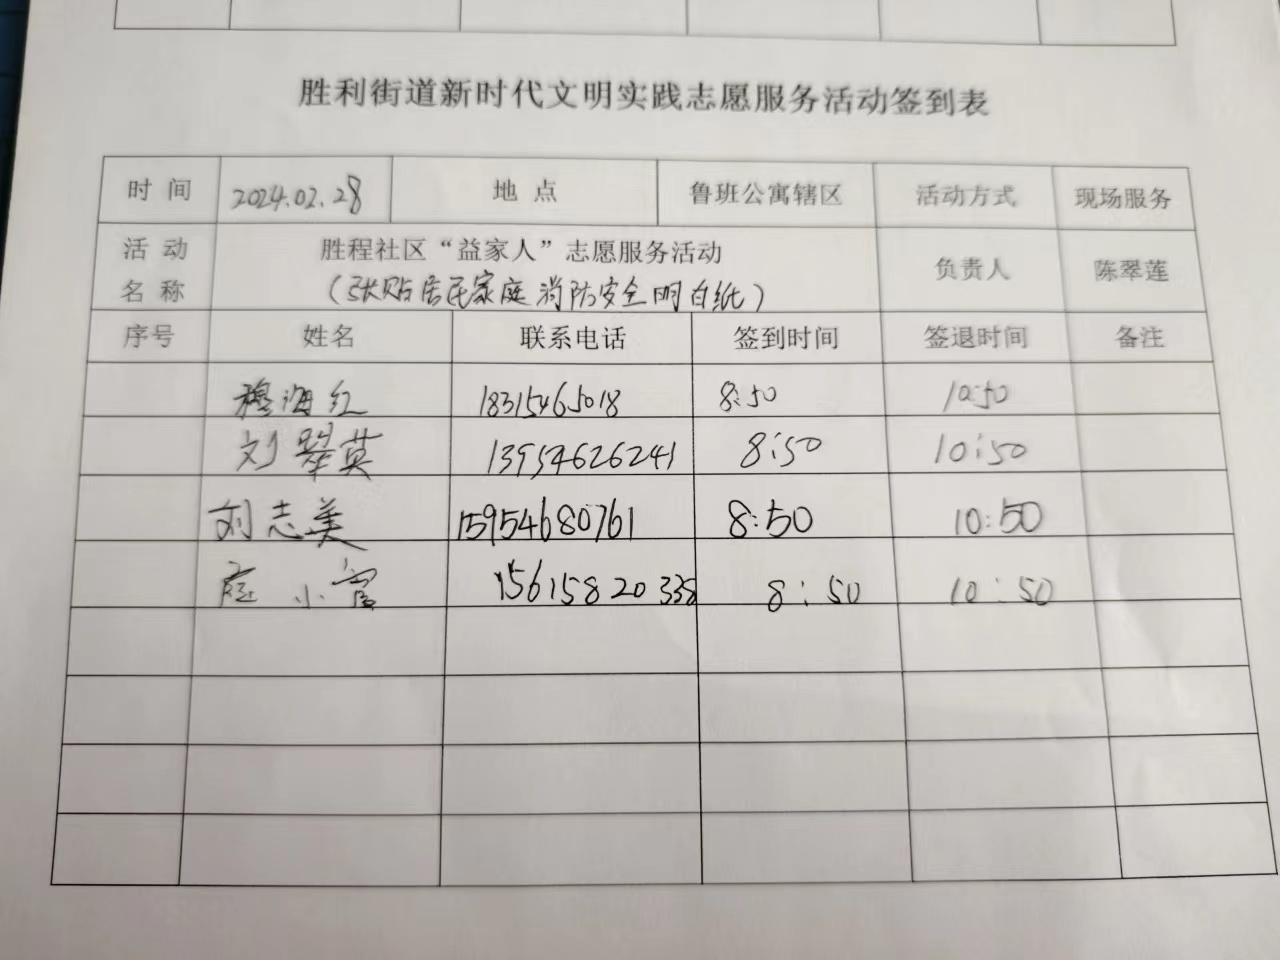 胜利街道新时代文明实践志愿服务活动签到表
时间 2024.02.28 地点 鲁班公寓辖区 活动方式 现场服务
活动名称 胜程社区“益家人”志愿服务活动 负责人 陈翠莲
（张贴居民家庭消防安全明白纸）
序号 姓名 联系电话 签到时间 签退时间 备注
穆海红 18315465018 8:50 10:50
刘翠英 13954626241 8:50 10:50
刘志美 15954680761 8:50 10:50
小富 15615820338 8:50 10:50